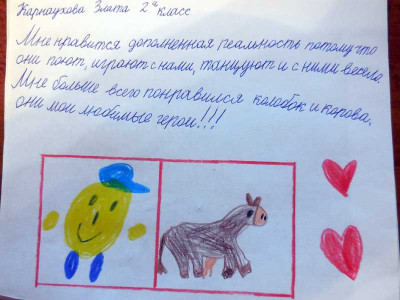 Карнаухова Злата 2а класс
Мне нравится дополненная реальность потому что
они поют, играют с нами, танцуют и с ними весело.
Мне больше всего понравился колобок и корова,
они мои любимые герои!!!